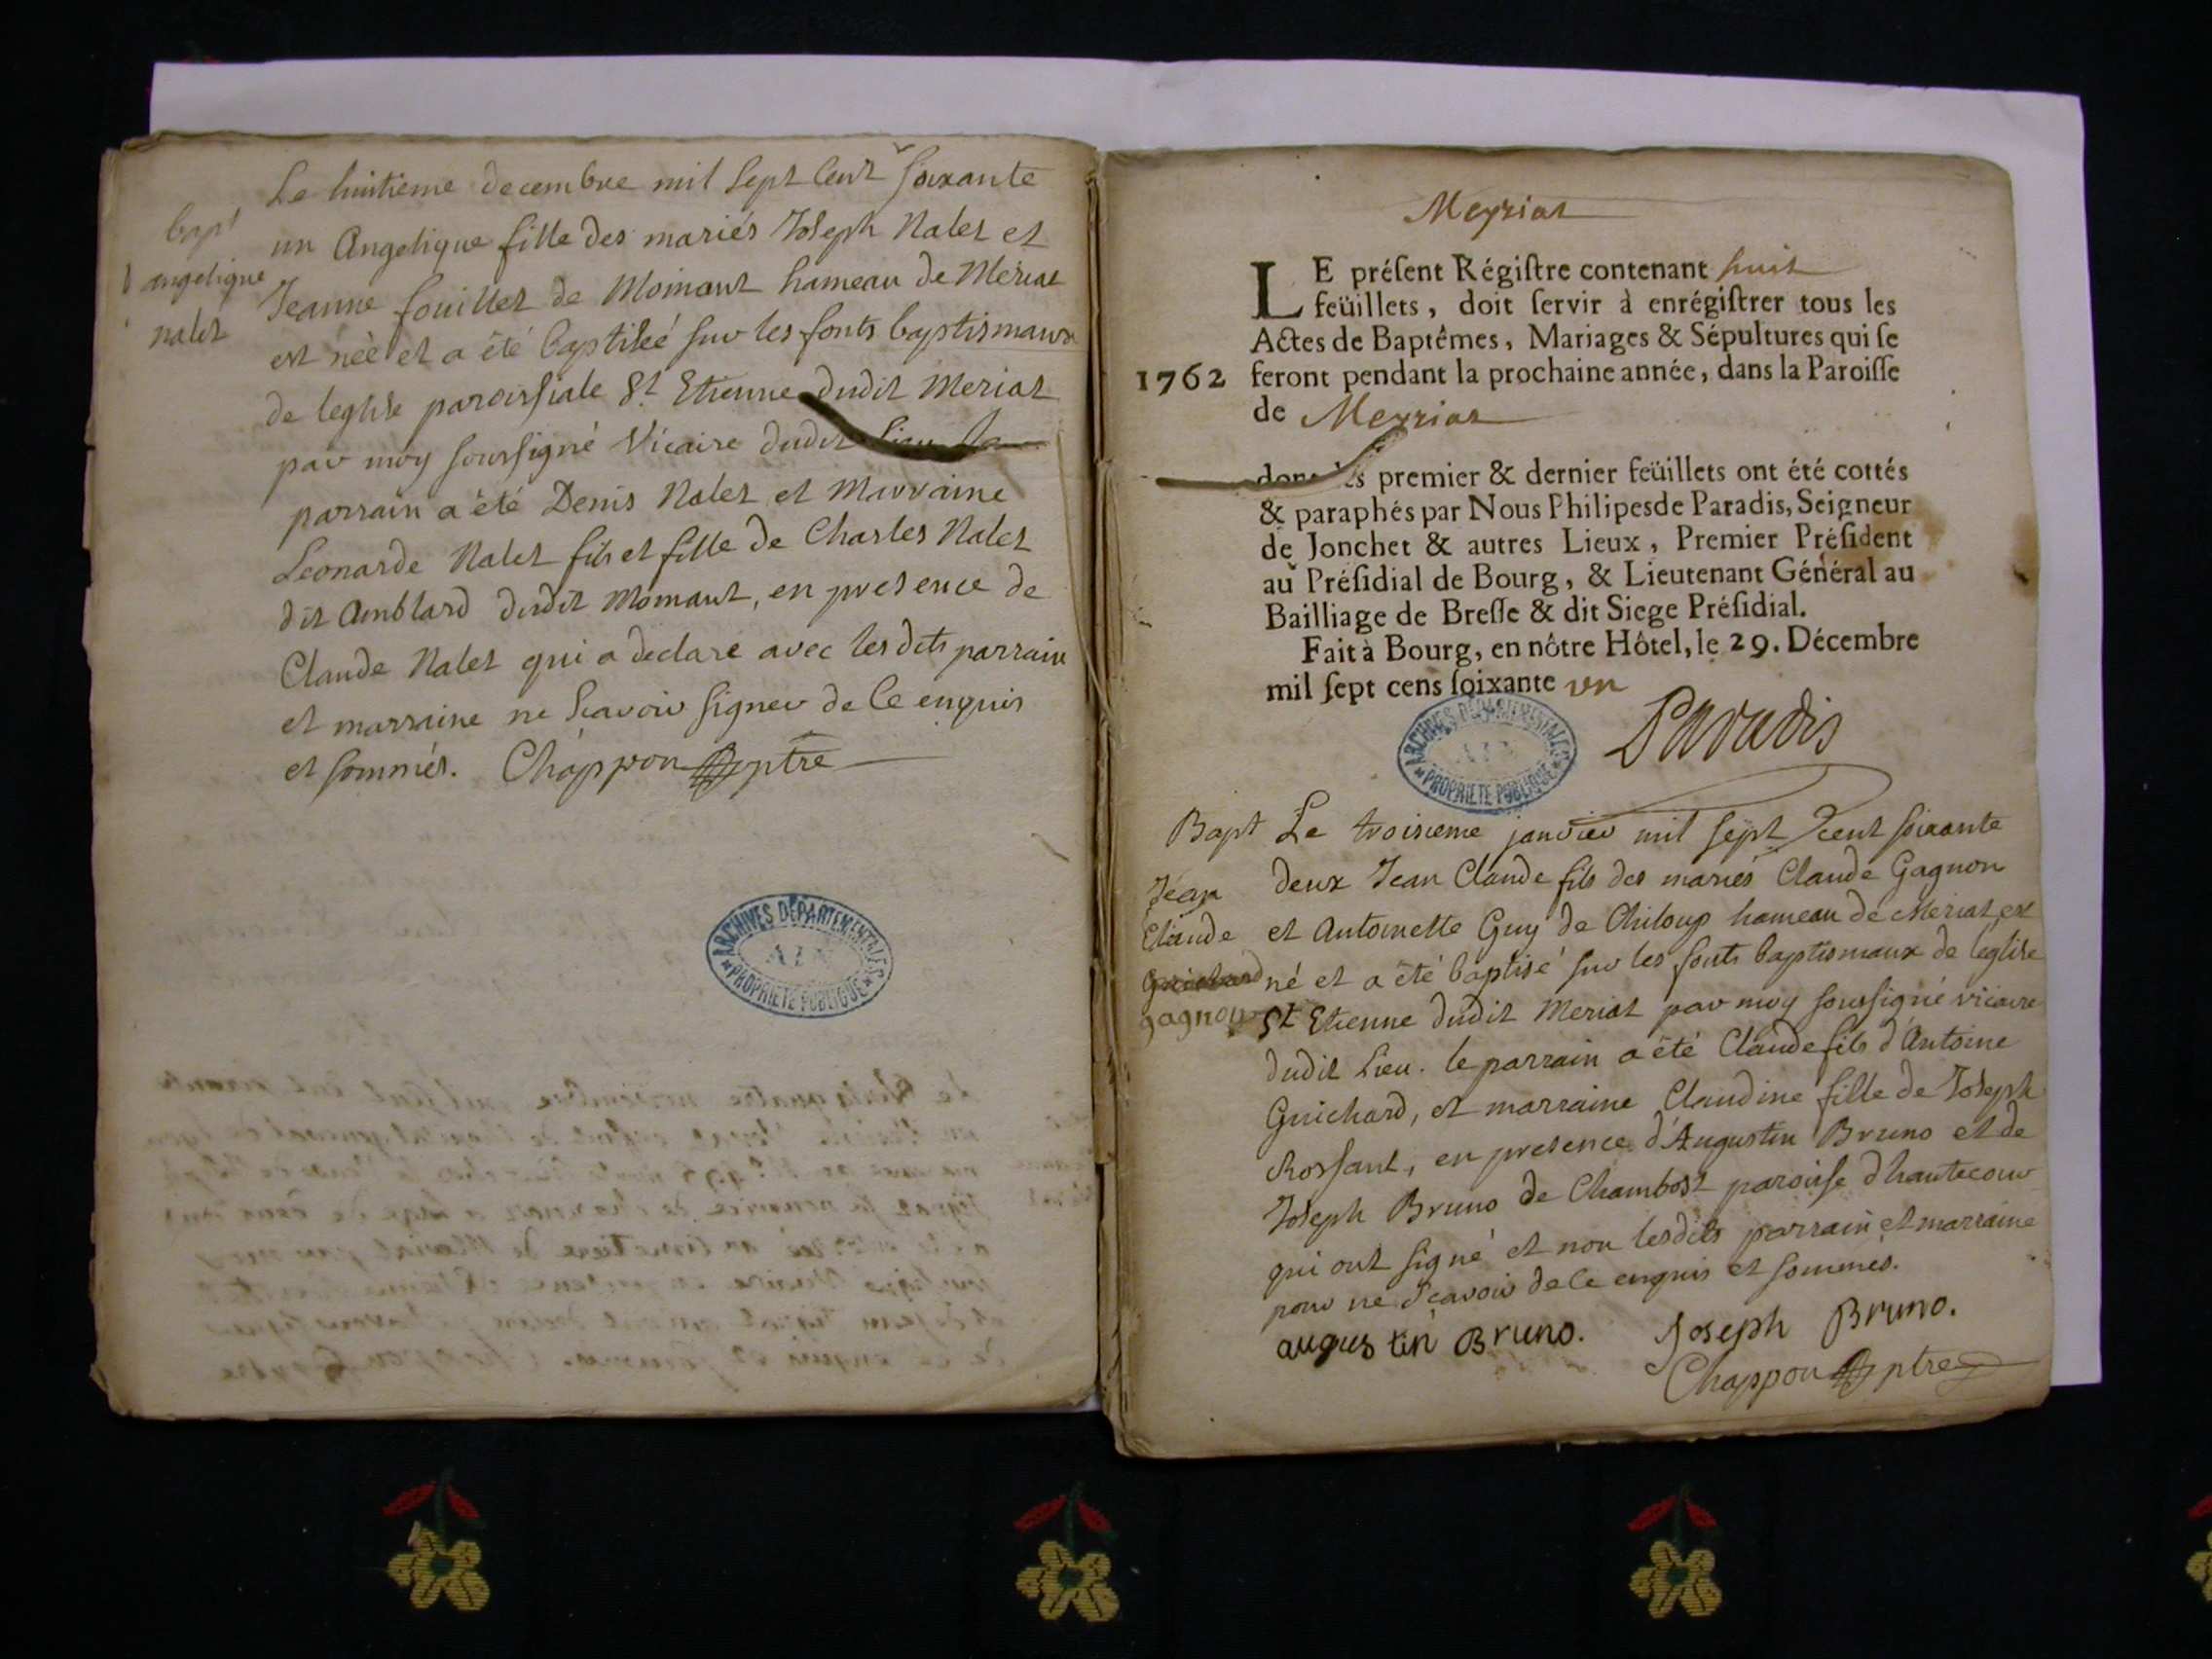 Le huitieme decembre mil sept cent soixante
bapt
un Angelique fille des mariés Joseph Nalet et
d'angelique
Jeanne fouillet de Moinant hameau de Meriat
nalet
est neé et a été baptiseé sur les fonts baptismaux
de leglise paroissiale St Etienne dudit Meriat
par moy soussigné Vicaire dudit Lieu
parrain a été Denis Nalet et Marraine
Leonarde Nalet fils et fille de Charles Nalet
dit Amblard dudit Momant, en presence de
Claude Nalet qui a declaré avec lesdits parrain
et marraine ne scavoir signer de ce enquis
et sommés. Chappon ptre
ARCHIVES DÉPARTEMENTALES
AIN
PROPRIÉTÉ PUBLIQUE
Meyriat
LE préſent Régiſtre contenant huit
feüillets, doit ſervir à enrégiſtrer tous les
Actes de Baptêmes, Mariages & Sépultures qui ſe
1762 feront pendant la prochaine année, dans la Paroiſſe
de Meyriat
premier & dernier feüillets ont été cottés
& paraphés par Nous Philipes de Paradis, Seigneur
de Jonchet & autres Lieux, Premier Préſident
au Préſidial de Bourg, & Lieutenant Général au
Bailliage de Breſſe & dit Siege Préſidial.
Fait à Bourg, en nôtre Hôtel, le 29. Décembre
mil ſept cens ſoixante un
Paradis
ARCHIVES DÉPARTEMENTALES
AIN
PROPRIÉTÉ PUBLIQUE
Bapt Le troisieme janvier mil sept cent soixante
Jean deux Jean Claude fils des mariés Claude Gagnon
Claude et Antoinette Guy de Chiloup hameau de Meriat est
Guichard né et a été baptisé sur les fonts baptismaux de leglise
gagnon St Etienne dudit Meriat par moy soussigné vicaire
dudit Lieu. le parrain a été Claude fils d'Antoine
Guichard, et marraine Claudine fille de Joseph
Rossant, en presence d'Augustin Bruno et de
Joseph Bruno de Chambost paroisse d'hautecour
qui ont signé et non lesdits parrain et marraine
pour ne scavoir de ce enquis et sommés.
augustin Bruno. Joseph Bruno.
Chappon ptre